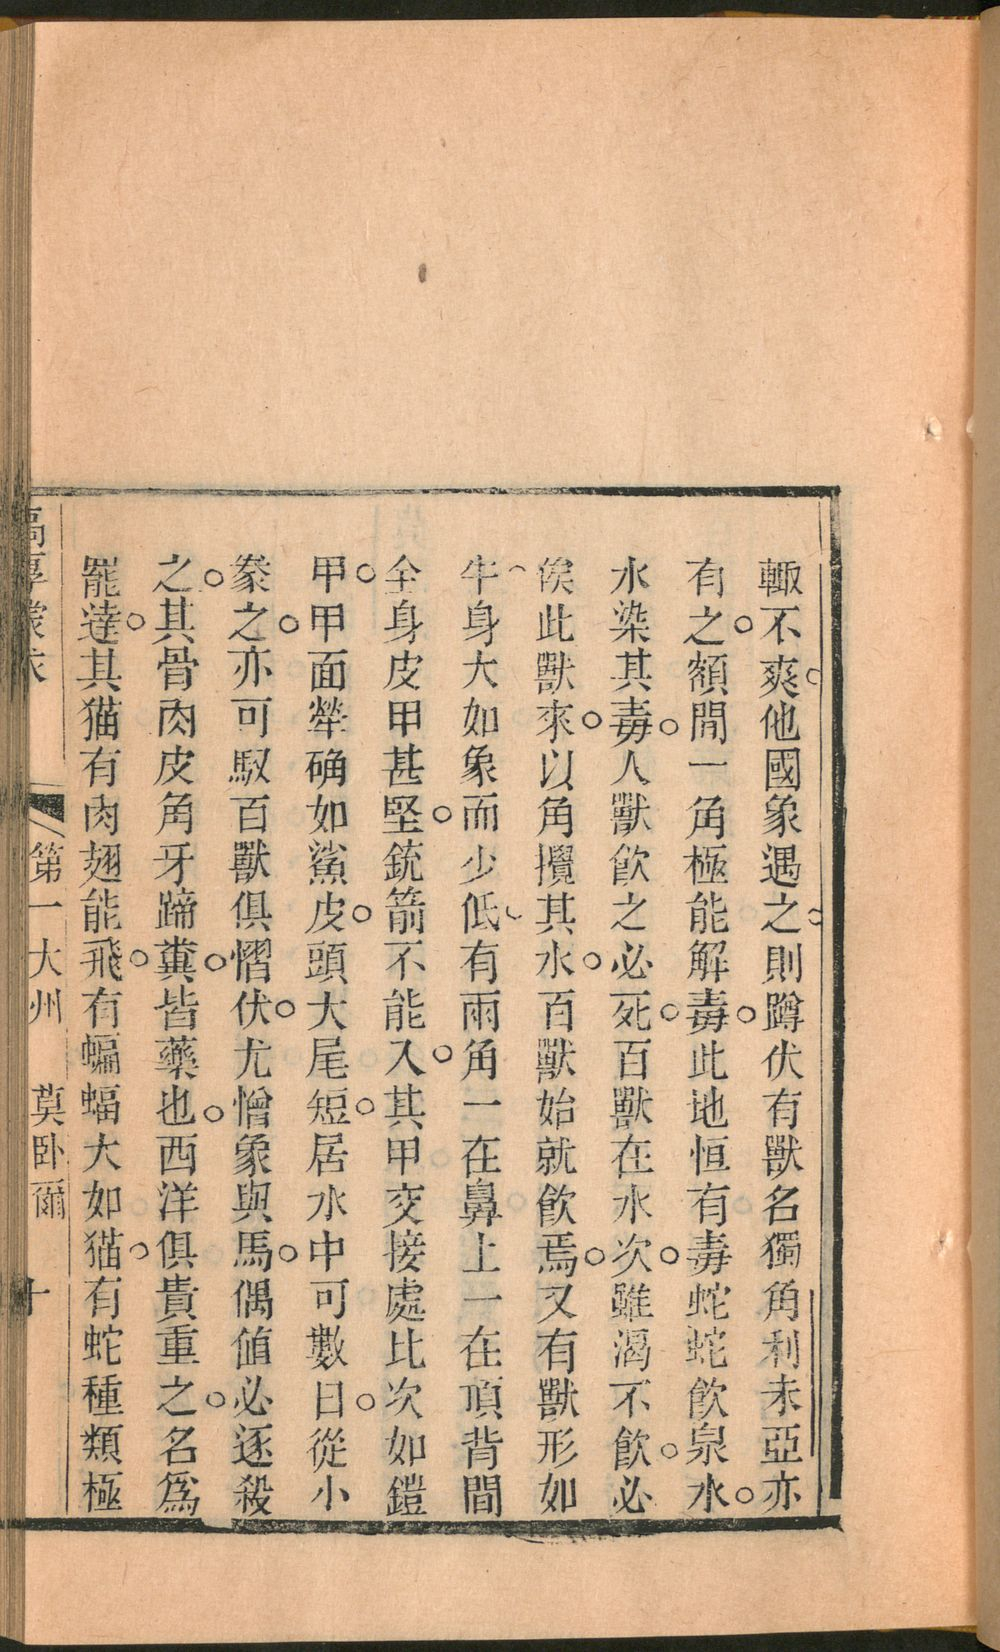 輙不爽他國象遇之則蹲伏有獸名獨角利未亞亦
有之額間一角極能解毒此地恒有毒蛇蛇飲泉水
水染其毒人獸飲之必死百獸在水次雖渴不飲必
俟此獸來以角攪其水百獸始就飲焉又有獸形如
牛身大如象而少低有兩角一在鼻上一在頂背間
全身皮甲甚堅銃箭不能入其甲交接處比次如鎧
甲甲面犖确如鯊皮頭大尾短居水中可數日從小
豢之亦可馭百獸俱慴伏尤憎象與馬偶値必逐殺
之其骨肉皮角牙蹄糞皆藥也西洋俱貴重之名爲
罷達其猫有肉翅能飛有蝙蝠大如猫有蛇種類極
第一大州 莫卧爾 十